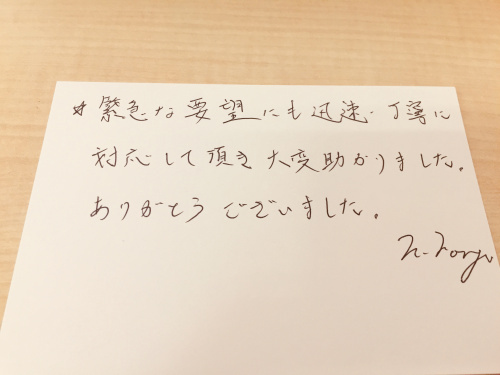 ☆緊急な要望にも迅速・丁寧に
対応して頂き大変助かりました。
ありがとうございました。